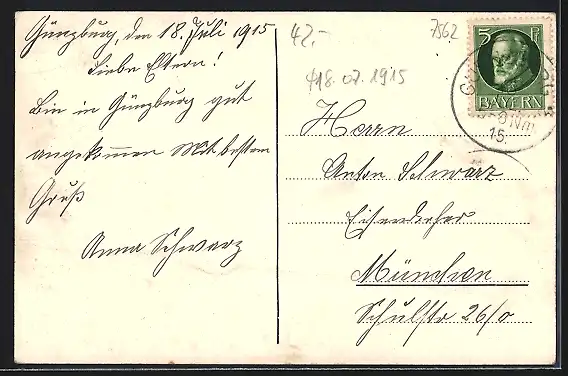 Günzburg, den 18. Juli 1915
Liebe Eltern!
Bin in Günzburg gut
angekommen Mit besten
Gruß
Anna Schwarz
42.-
7562
18.07.1915
5 Pf
BAYERN
Nm
15.
Herrn
Anton Schwarz
Eisendreher
München
Schulstr 26/0